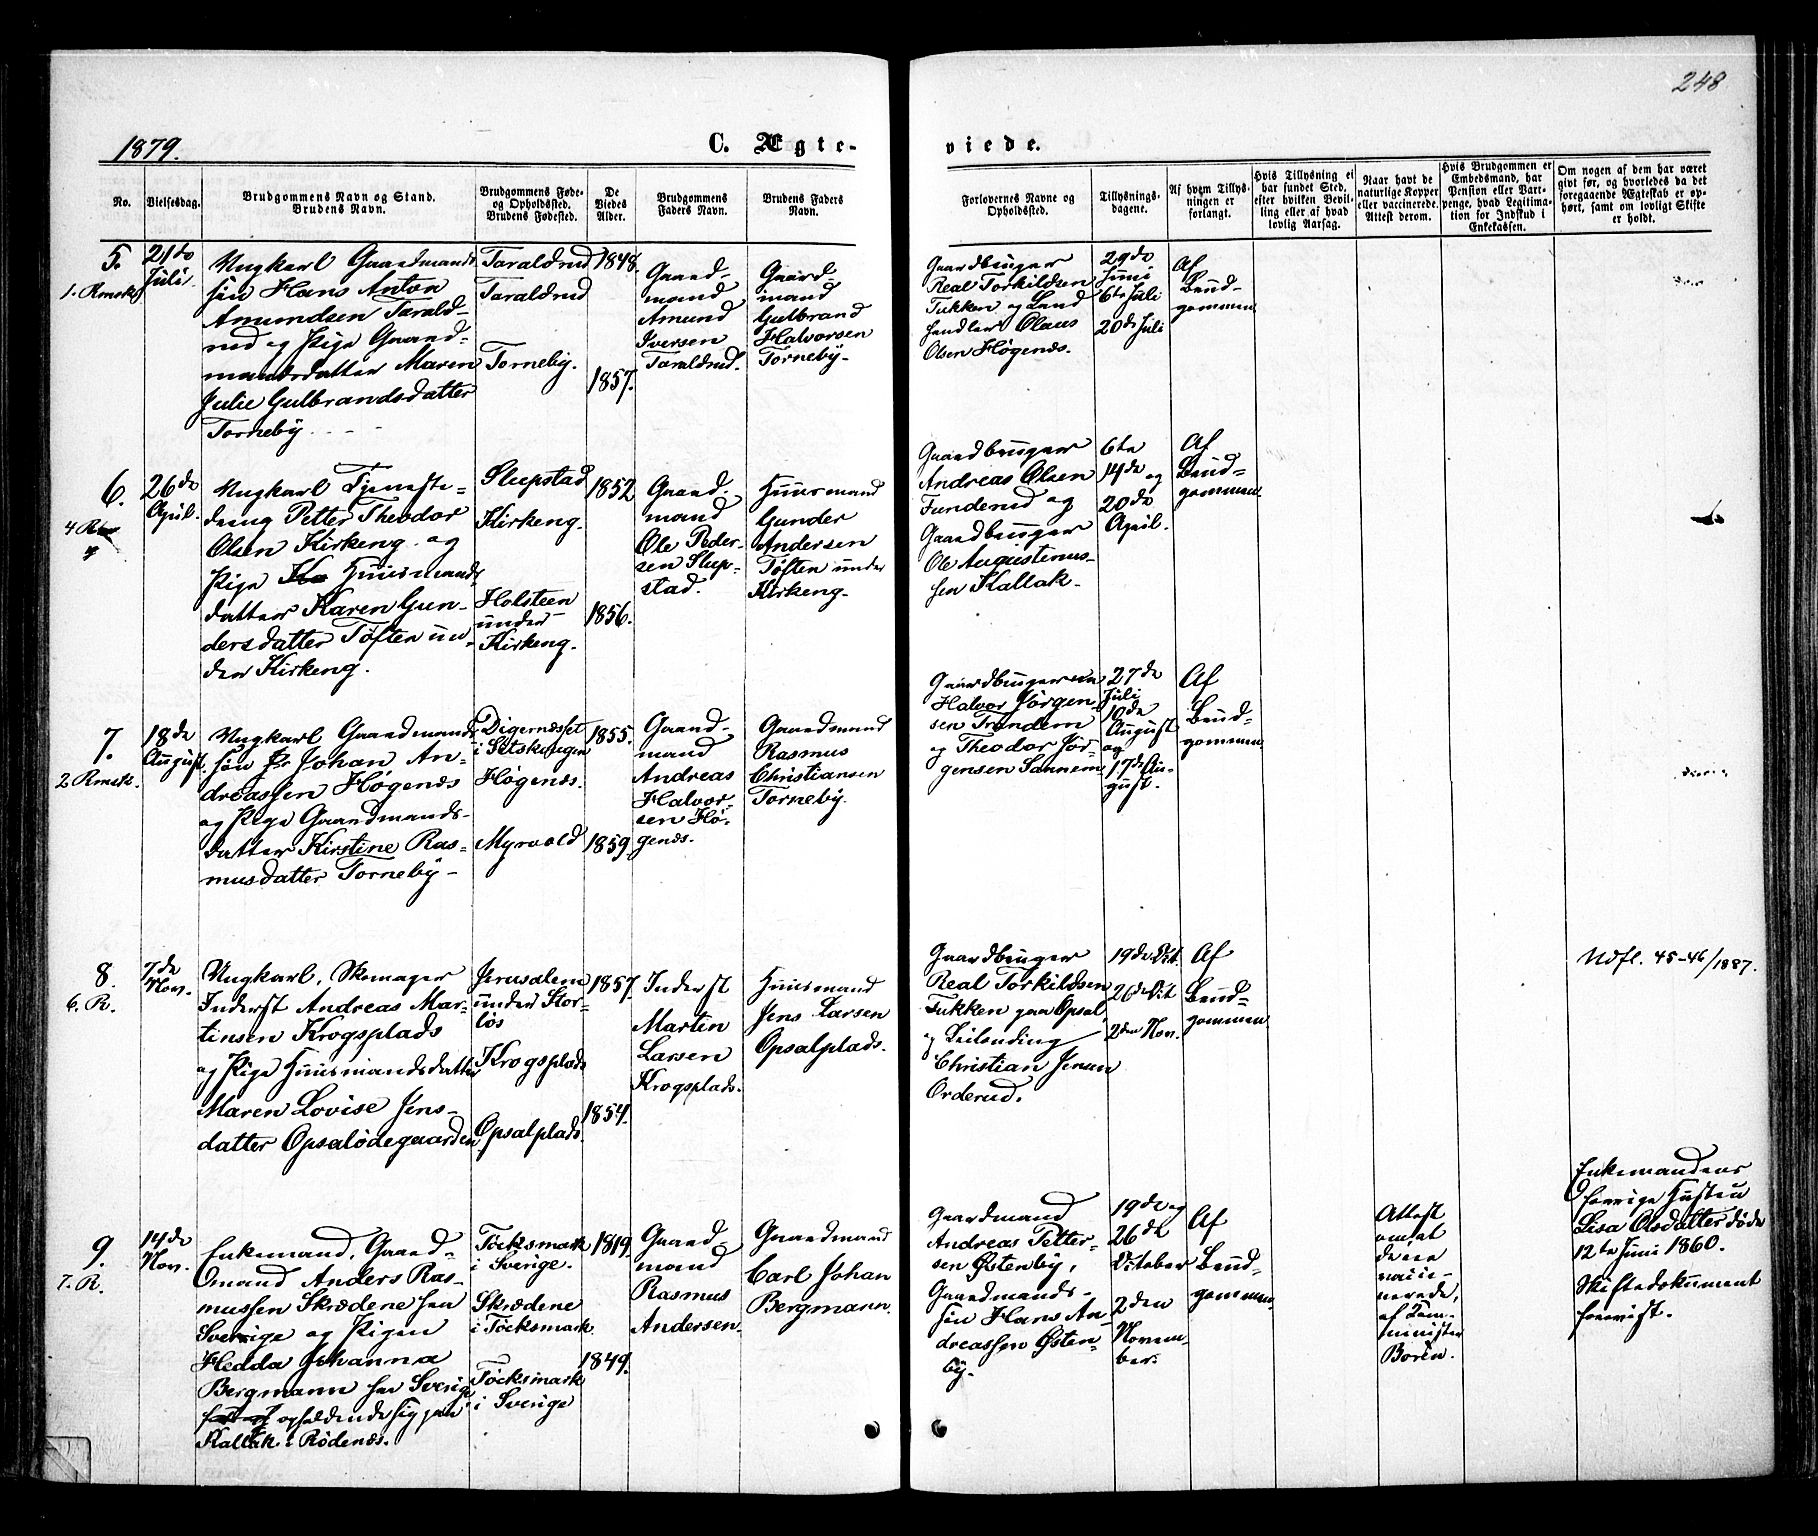 248
1879.
C. Ægte-
viede.
No.
Vielsesdag.
Brudgommens Navn og Stand.
Brudens Navn.
Brudgommens Føde-
og Opholdssted.
Brudens Fødested.
De
Viedes
Alder.
Brudgommens
Faders Navn.
Brudens Faders
Navn.
Forlovernes Navne og
Opholdssted.
Tillysnings-
dagene.
Af hvem Tillys-
ningen er
forlangt.
Hvis Tillysning ei
har fundet Sted,
efter hvilken Bevil-
ling eller af hvad
lovlig Aarsag.
Naar havt de
naturlige Kopper
eller vaccinerede.
Attest derom.
Hvis Brudgommen er
Embedsmand, har
Pension eller Vart-
penge, hvad Legitima-
tion for Indskud i
Enkekassen.
Om nogen af dem har været
givt før, og hvorledes da det
foregaaende Ægteskab er op-
hørt, samt om lovligt Skifte
er holdt.
5.
1. Rmsk
21de
Juli
Ungkarl Gaardmands
søn Hans Anton
Amundsen Tarald-
rud og Pige Gaard-
mandsdatter Maren
Julie Gulbrandsdatter
Torneby
Taraldrud
Taraldrud
Torneby.
1848.
1857.
Gaard-
mand
Amund
Iversen
Taraldrud.
Gaard-
mand
Gulbrand
Halvorsen
Torneby-
Gaardbruger
Real Torkildsen
Tukken og Land
handler Olaus
Olsen Høgenæs.
29de
Juni
6te Juli
20de Juli
Af
Brud-
gommen
6.
26de
April.
Ungkarl Tjeneste-
dreng Petter Theodor
Olsen Kirkeng og
Pige Huusmands
datter Karen Gun-
dersdatter Tøften un-
der Kirkeng.
Slupstad
Kirkeng.
Holsteen
under
Kirkeng.
1852
1856.
Gaard-
mand
Ole Peder-
sen Slup-
stad.
Huusmand
Gunder
Andersen
Tøften under
Kirkeng-
Gaardbruger
Andreas Olsen
Funderud og
Gaardbruger
Ole Augustinus-
sen Kallak-
6te
14de og
20de
April.
Af
Brud-
gommen
7.
2 Rmsk.
18de
August.
Ungkarl Gaardmands
søn Johan An-
dreassen Høgenæs
og Pige Gaardmands-
datter Kirstine Ras-
musdatter Torneby-
Digernæsset
i Setskougen
Høgenæs.
Myrvold
1855.
1859.
Gaard-
mand
Andreas
Halvor-
sen Hø-
genæs.
Gaardmand
Rasmus
Christiansen
Torneby.
Gaardbrugerne
Halvor Jørgen-
sen Trandem
og Theodor Jør-
gensen Sannem
27de
Juli
10de
August
og
17de Au-
gust.
Af
Brud-
gommen
8.
6. R.
7de
Nov.
Ungkarl, Skomager
Inderst Andreas Mar-
tinsen Krogsplads
og Pige Huusmandsdatter
Maren Lovise Jens-
datter Opsalødegaarden
Jerusalem
under Stor-
løs
Krogsplads
Opsalplads.
1857.
1854.
Inderst
Martin
Larsen
Krogsplads.
Huusmand
Jens Larsen
Opsalplads.
Gaardbruger
Real Torkildsen
Tukken paa Opsal
og Leilending
Christian Jensen
Orderud.
19de Oct.
26de Oct
2den Nov.
Af
Brud-
gommen
Udfl. 45-46/1887.
9.
7. R.
14de
Nov.
Enkemand, Gaard-
mand Anders Ras-
mussen Skrædene fra
Sverige og Pigen
Hedda Johanna
Bergmann fra Sverige
opholdende sig paa
Kallak i Rødenæs.
Töcksmark
i Sverige.
Skrædene
i Töcksmark
Töcksmark
i Sverige
1819.
1849.
Gaard-
mand
Rasmus
Andersen.
Gaardmand
Carl Johan
Bergmann.
Gaardmand
Andreas Petter-
sen Østenby,
Gaardmands-
søn Hans An-
dreassen Østen-
by.
19de og
26de
October
2den
Novem-
ber.
Af
Brud-
gommen
Attest
om at
de ere
vacci-
nerede,
af Kom-
minister
Borén.
Enkemandens
forrige Hustru
Lisa Olsdatter døde
12te Juni 1860.
Skiftedokument
forevist.